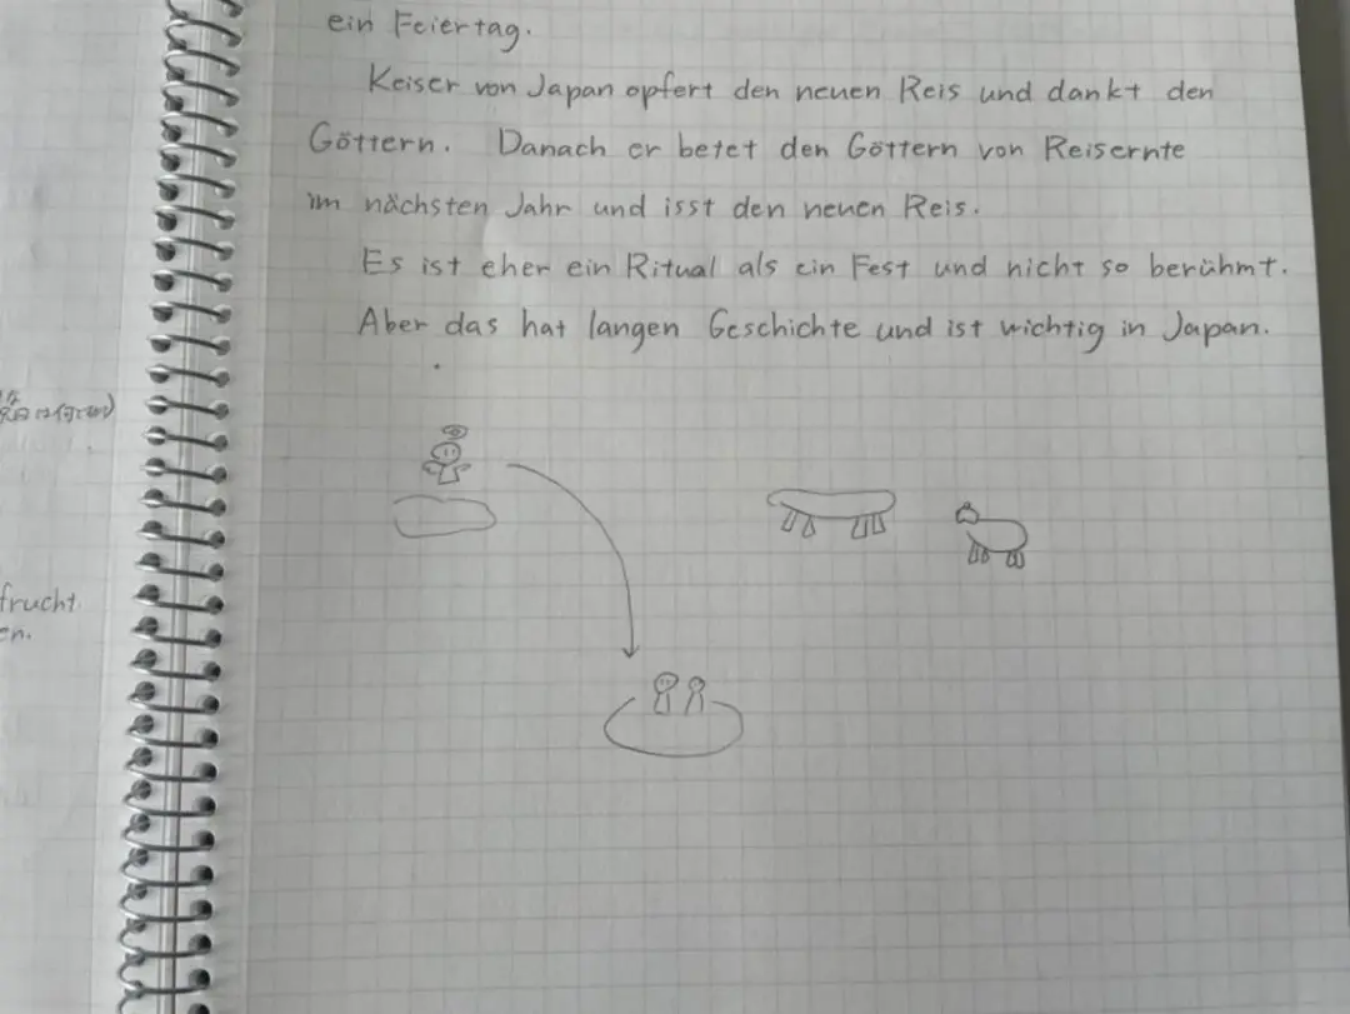 ein Feiertag.
Keiser von Japan opfert den neuen Reis und dankt den
Göttern. Danach er betet den Göttern von Reisernte
im nächsten Jahr und isst den neuen Reis.
Es ist eher ein Ritual als ein Fest und nicht so berühmt.
Aber das hat langen Geschichte und ist wichtig in Japan.
frucht
en.